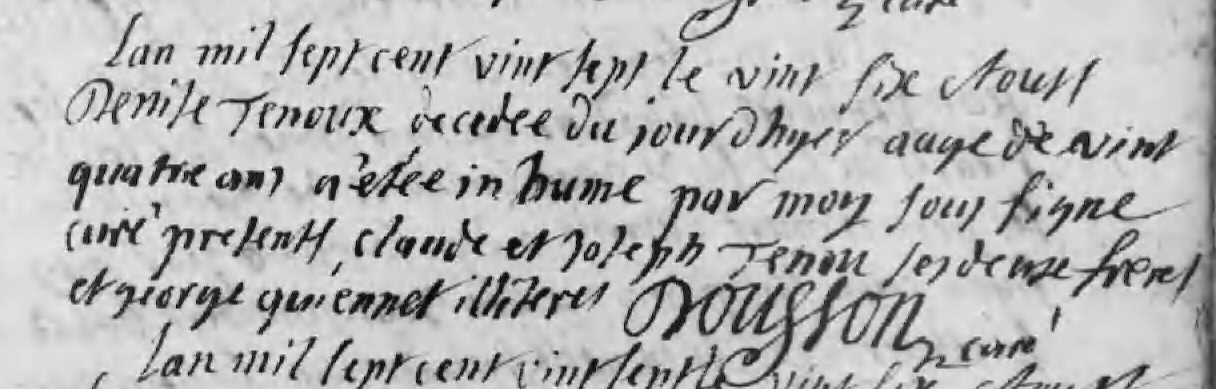 curé
Lan mil sept cent vint sept le vint six Aoust
Denise Tenoux decedee du jourdhyer auge de vint
quatre ans a etée in hume par moy sous signe
curé presents claude et Joseph Tenou ses deuxe freres
et george quiennet illiteres Dousson curé
Lan mil sept cent vint sept le vint six Aoust